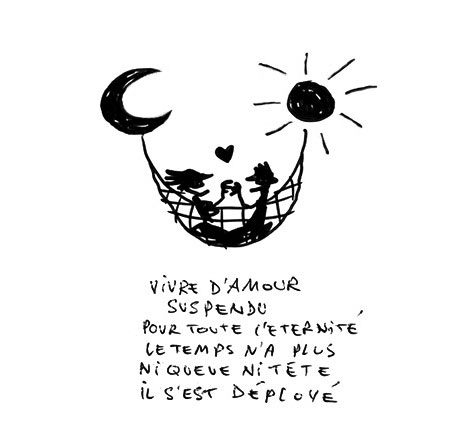 VIVRE D'AMOUR
SUSPENDU
POUR TOUTE L'ETERNITÉ
LE TEMPS N'A PLUS
NI QUEUE NI TÊTE
IL S'EST DÉPLOYÉ